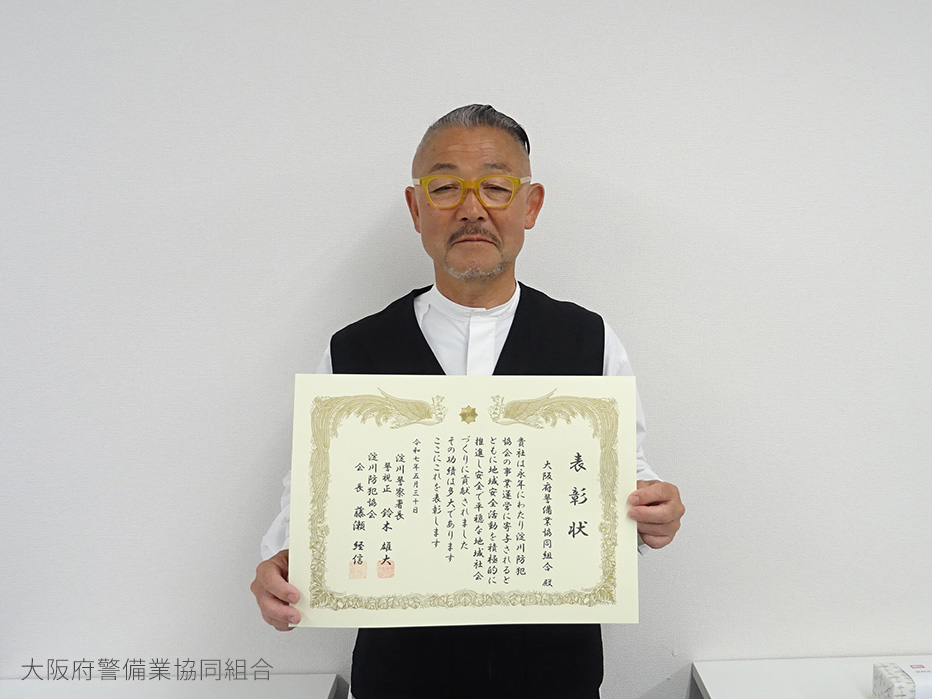 表彰状
大阪府警備業協同組合 殿
貴社は永年にわたり淀川防犯
協会の事業運営に寄与されると
ともに地域安全活動を積極的に
推進し安全で平穏な地域社会
づくりに貢献されました
その功績は多大であります
ここにこれを表彰します
令和七年五月三十日
淀川警察署長
警視正 鈴木雄大
淀川防犯協会
会長 藤瀬経信
大阪府警備業協同組合